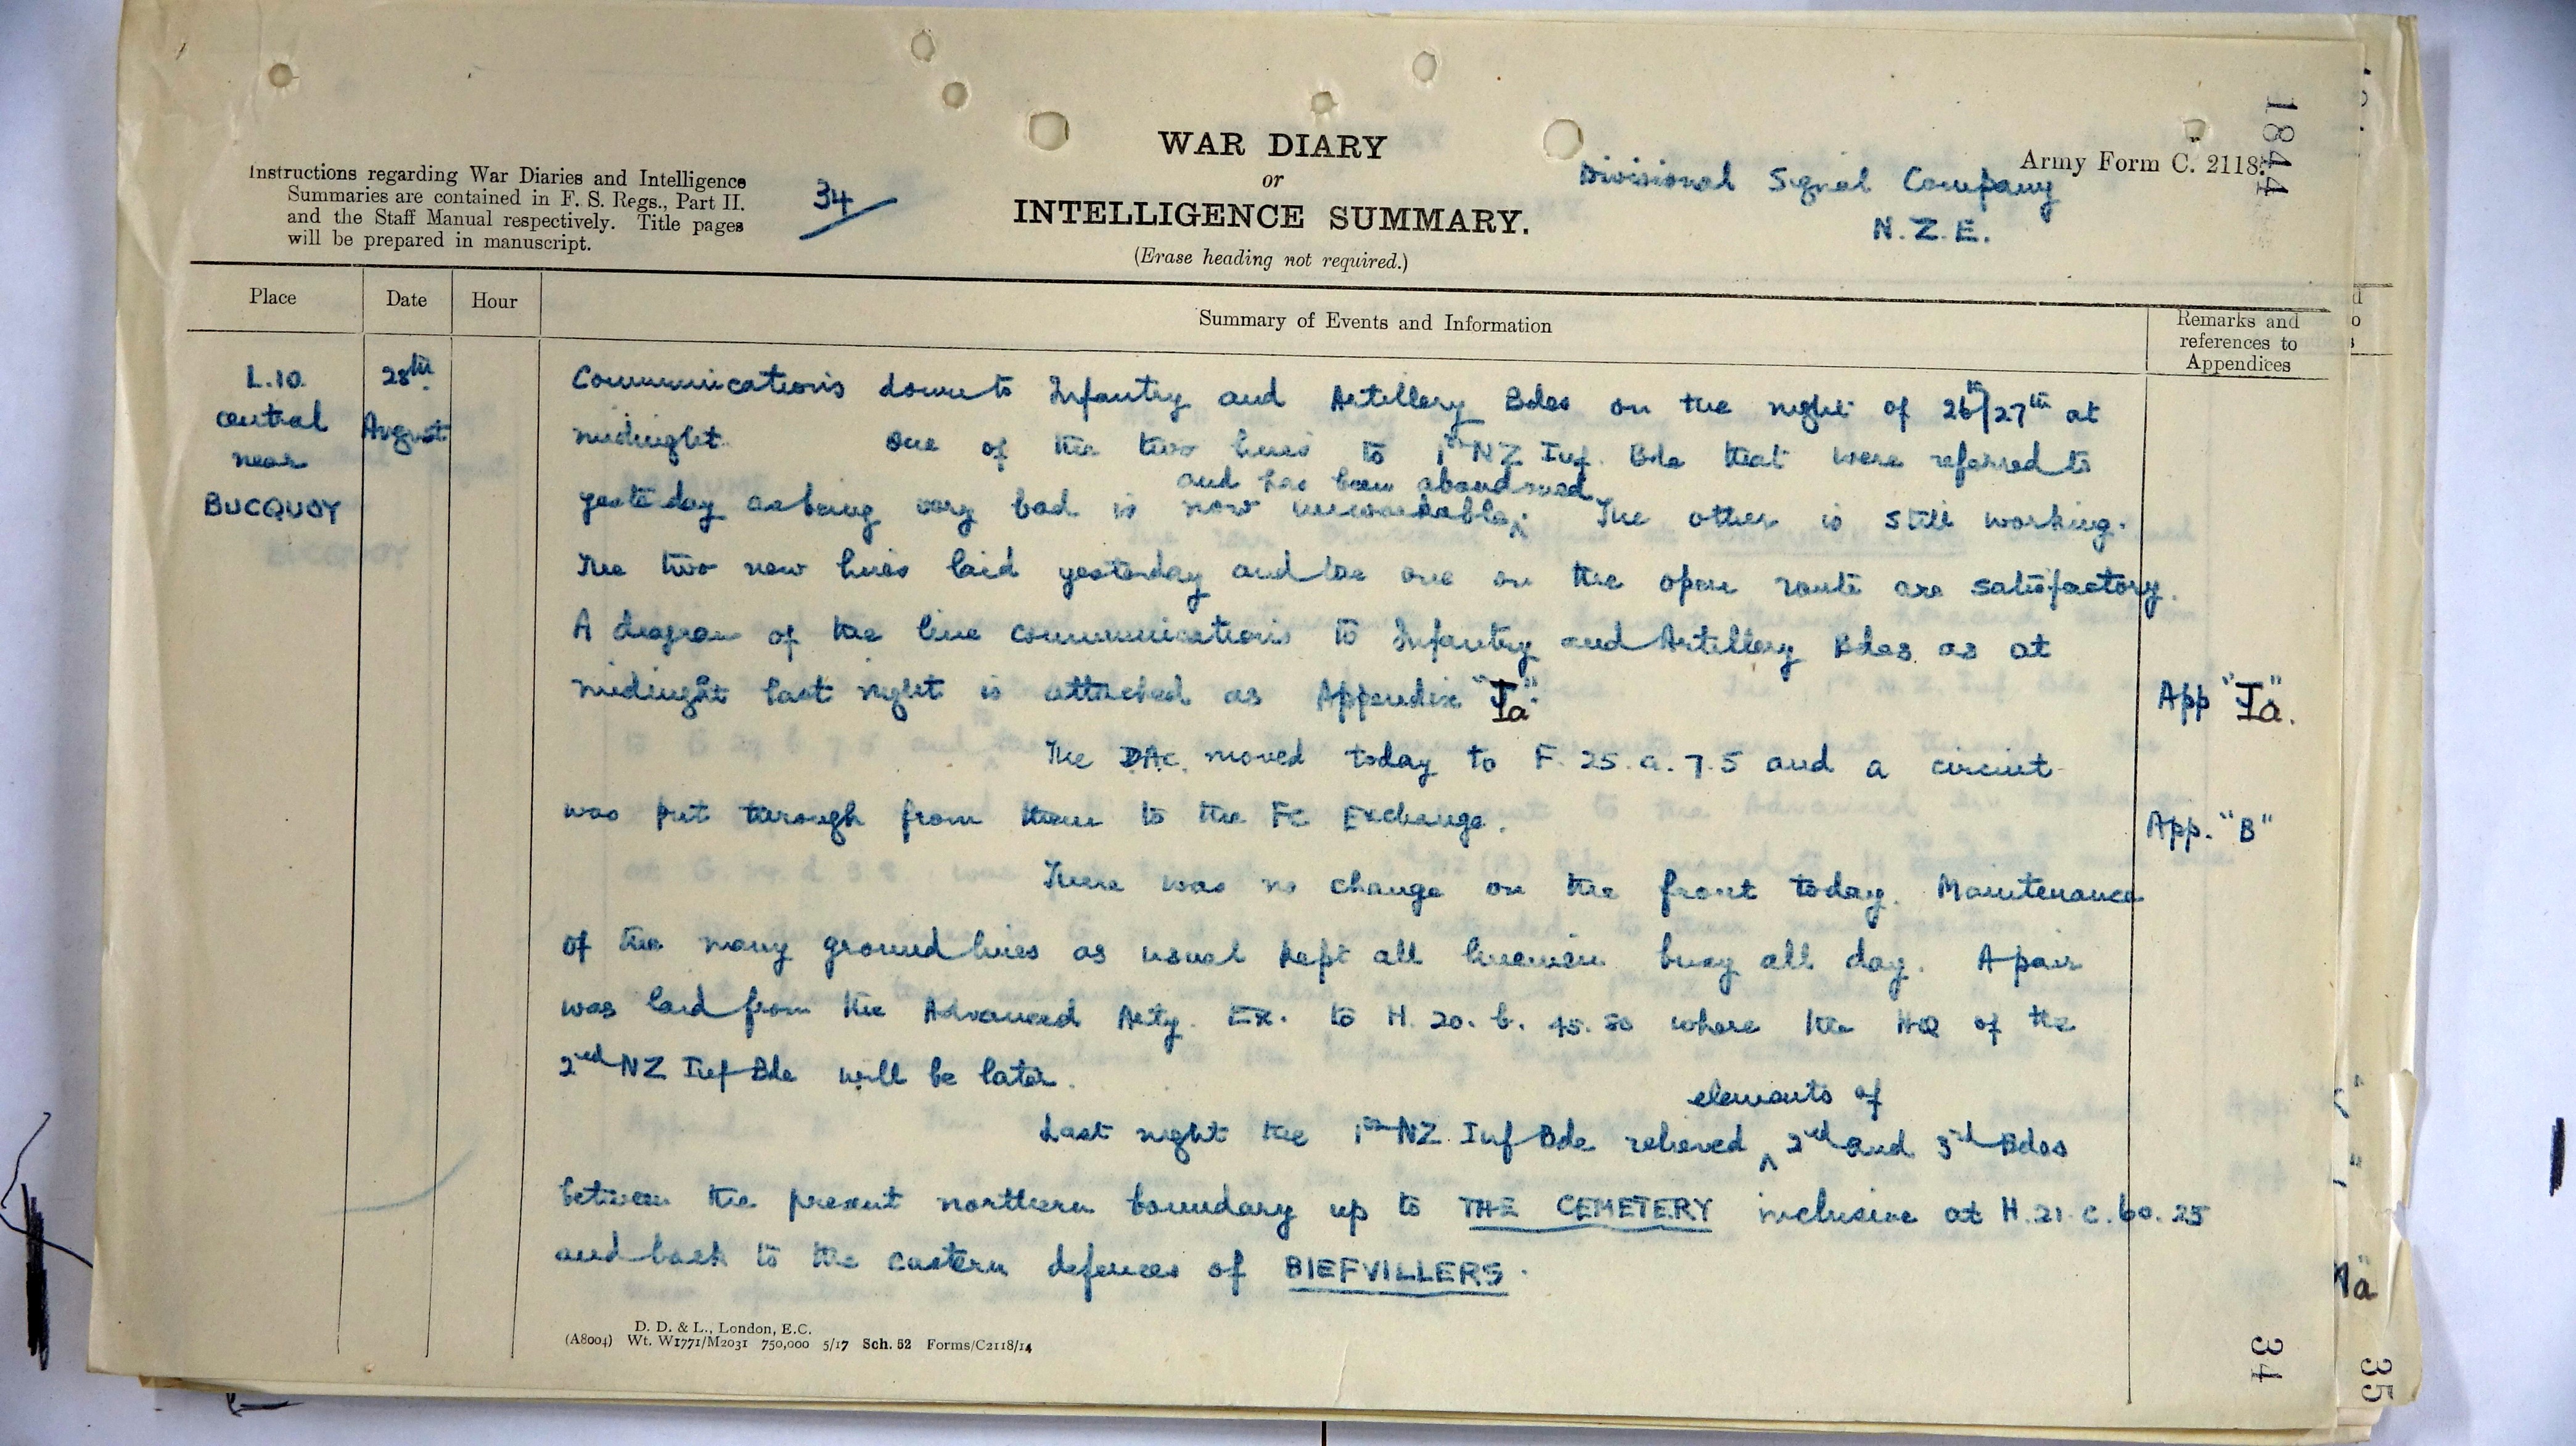 1844
Army Form C. 2118.
WAR DIARY
or
INTELLIGENCE SUMMARY.
(Erase heading not required.)
Instructions regarding War Diaries and Intelligence
Summaries are contained in F. S. Regs., Part II.
and the Staff Manual respectively. Title pages
will be prepared in manuscript.
34
Divisional Signal Company
N.Z.E.
Place
Date
Hour
Summary of Events and Information
Remarks and
references to
Appendices
L.10.
central
near
BUCQUOY
28th
August
Communications down to Infantry and Artillery Bdes on the night of 26th/27th at
midnight. One of the two lines to 1st NZ Inf. Bde that were referred to
and has been abandoned
yesterday as being very bad is now unworkable. The other is still working.
The two new lines laid yesterday and the one on the open route are satisfactory.
A diagram of the line communications to Infantry and Artillery Bdes. as at
midnight last night is attached as Appendix "Ia".
App "Ia".
The DAC. moved today to F. 25. a. 7.5 and a circuit
was put through from them to the FC Exchange.
App. "B"
There was no change on the front today. Maintenance
of the many ground lines as usual kept all linemen busy all day. A pair
was laid from the Advanced Arty. Ex. to H. 20. b. 45. 80 where the HQ of the
2nd NZ Inf Bde will be later.
elements of
Last night the 1st NZ Inf Bde relieved ^ 2nd and 3rd Bdes
between the present northern boundary up to THE CEMETERY inclusive at H. 21. c. 60. 25
and back to the eastern defences of BIEFVILLERS.
D. D. & L., London, E.C.
(A8004) Wt. W1771/M2031 750,000 5/17 Sch. 52 Forms/C2118/14
34
35